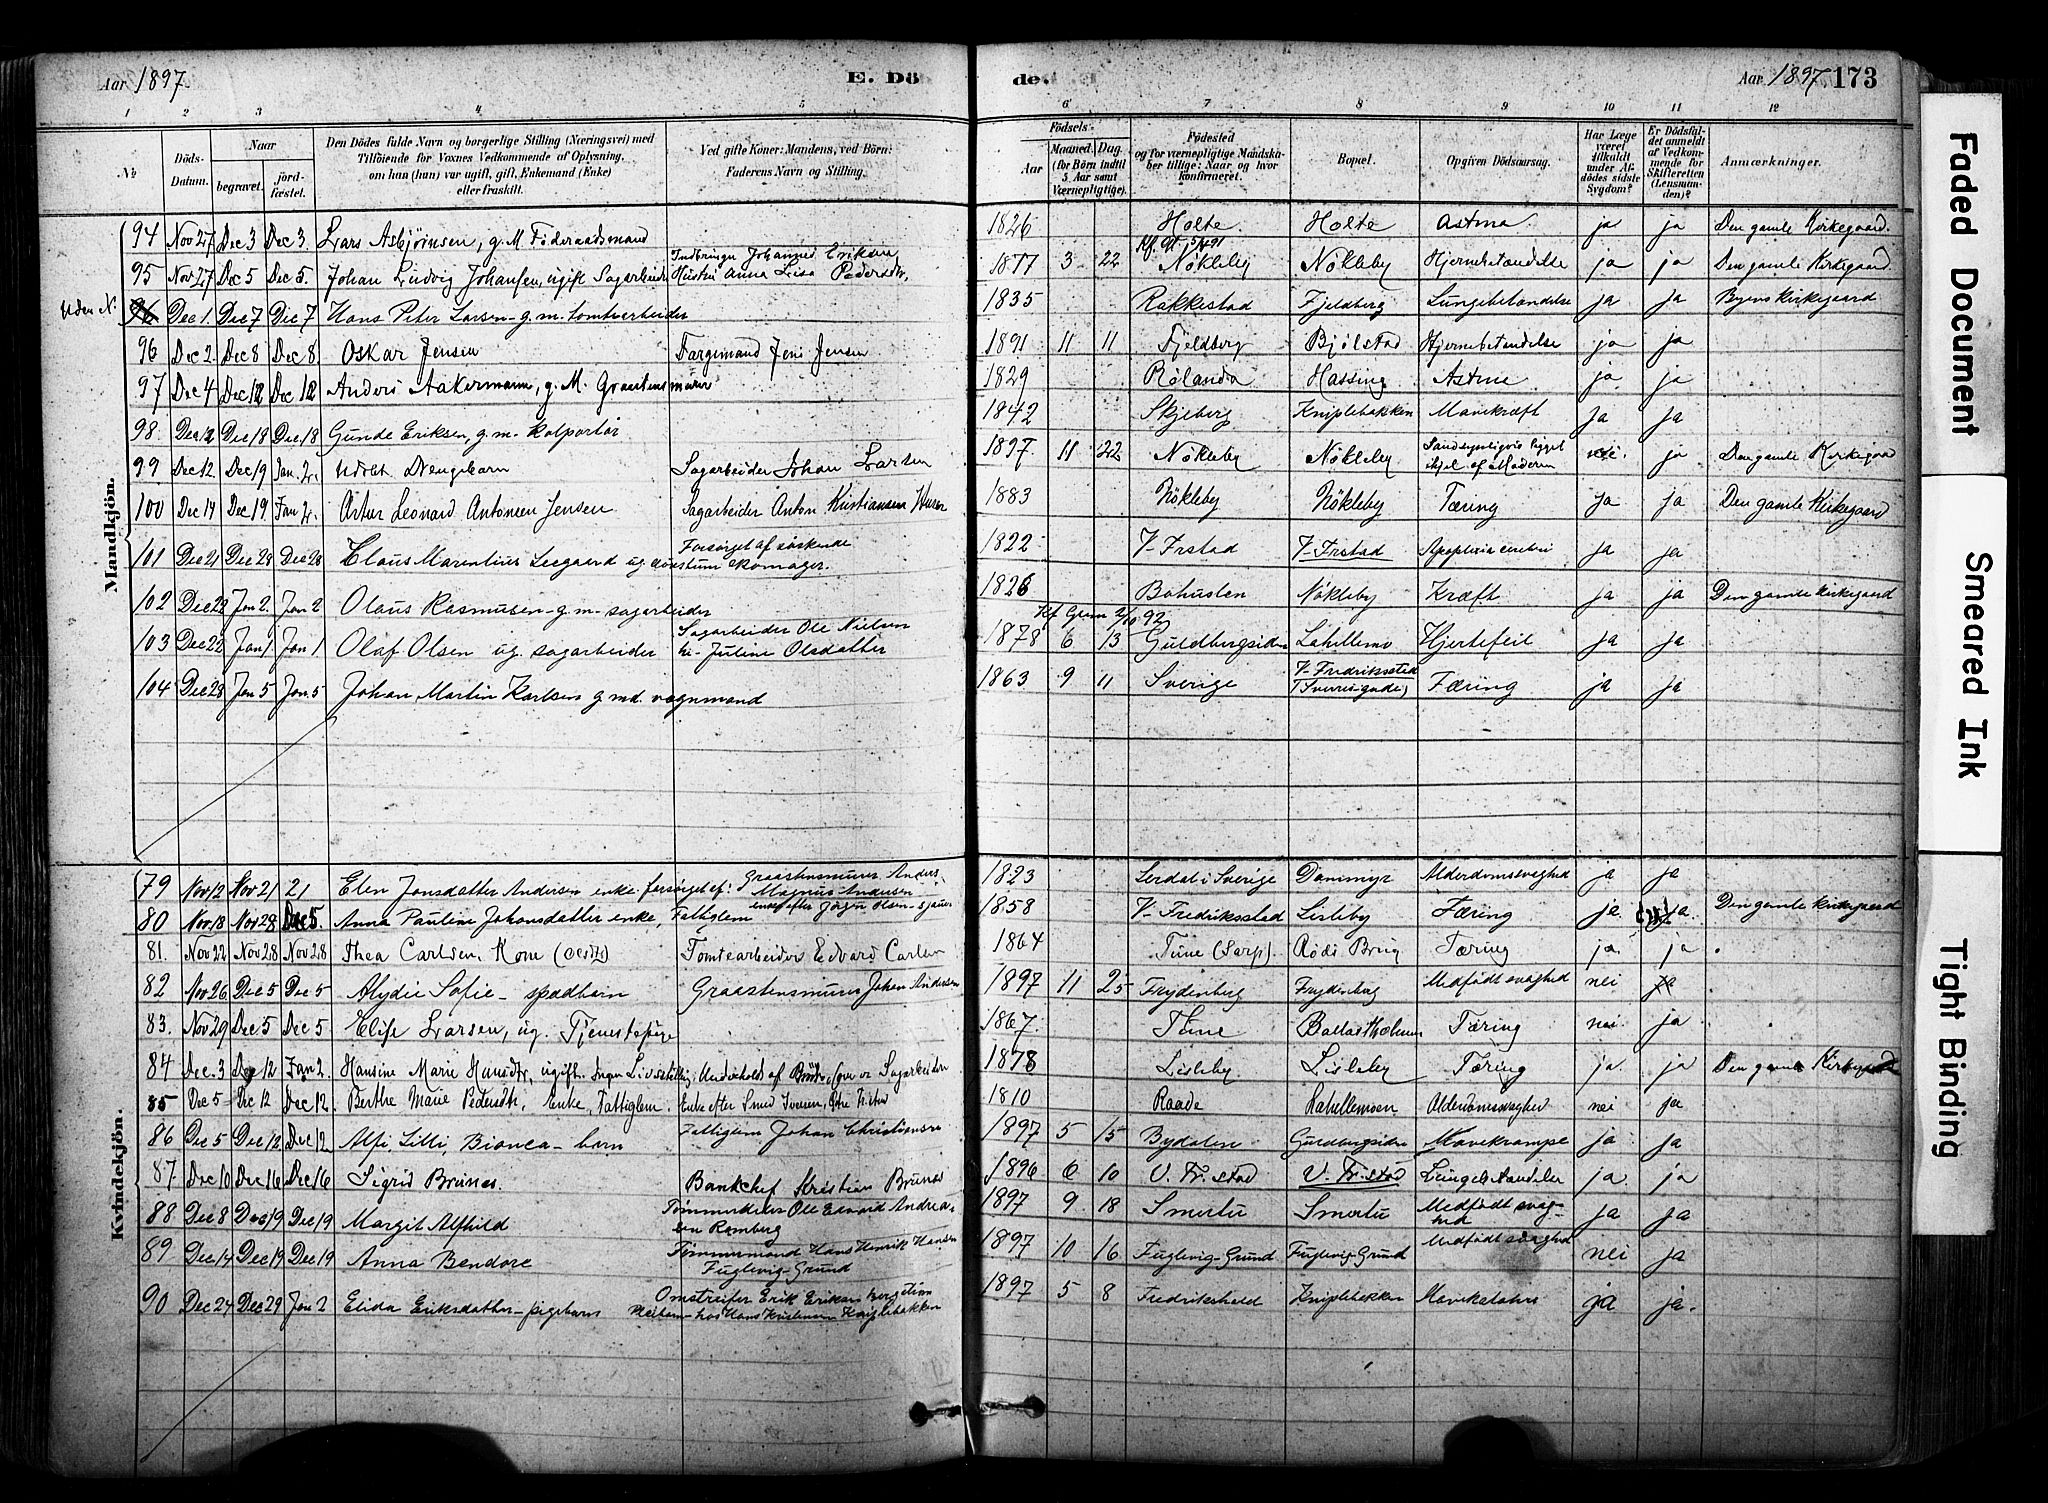 Aar 1897. E. Döde. Aar 1897 173
1 2 3 4 5 6 7 8 9 10 11 12
№ Döds-Datum. Naar begravet. jordfæstet. Den Dödes fulde Navn og borgerlige Stilling (Næringsvei) med Tilföiende for Voxnes Vedkommende af Oplysning, om han (hun) var ugift, gift, Enkemand (Enke) eller fraskilt. Ved gifte Koner: Mandens, ved Börn: Faderens Navn og Stilling. Födsels- Aar Maaned Dag (for Börn indtil 5 Aar samt Værnepligtige). Födested og for værnepligtige Mandskaber tillige: Naar og hvor konfirmeret. Bopæl. Opgiven Dödsaarsag. Har Læge været tilkaldt under Afdödes sidste Sygdom? Er Dödsfaldet anmeldt af Vedkommende for Skifteretten (Lensmanden)? Anmærkninger.
Mandkjön.
94 Nov 27 Dec 3 Dec 3. Lars Asbjörnsen, g. M. Föderaadsmand 1826 Holte Holte Astma. ja ja Den gamle Kirkegaard.
95 Nov 27 Dec 5 Dec 5. Johan Ludvig Johansen, ugift Sagarbeider Johannes Eriksen Hustru Anna Lisa Pedersdtr. 1877 3 22 Nökleby Nökleby Hjernebetændelse ja ja Den gamle Kirkegaard.
Uden N. 96 Dec 1. Dec 7 Dec 7 Hans Peter Larsen - g. m. tomtearbeider 1835 Rakkestad Fjeldberg Lungebetændelse ja ja Byens kirkegaard
96 Dec 2. Dec 8 Dec 8. Oskar Jensen Jens Jensen 1891 11 11 Fjeldberg Bjölstad Hjernebetændelse ja ja
97 Dec 4 Dec 12 Dec 12 Anders Aakermann, g. M. Graastensmurer 1829 Rölanda Hassing Astma ja ja
98. Dec 12 Dec 18 Dec 18 Gunde Eriksen, g. m. kolportör 1842 Skjeberg Kniplebakken Mavekræft ja ja
99 Dec 12. Dec 19 Jan 2. Udöbt Drengebarn Sagarbeider Johan Larsen 1897 11 22 Nökleby Nökleby Sandsynligvis ligget ihjel af Moderen nei. ja Den gamle Kirkegaard
100 Dec 14 Dec 19 Jan 2. Artur Leonard Antonsen Jensen Sagarbeider Anton Kristiansen 1883 Nökleby Nökleby Tæring ja ja Den gamle Kirkegaard
101 Dec 21 Dec 28 Dec 28 Claus Marentius ug skomager. Forsörget af söskende 1822 V-Frstad V-Frstad Apoplexia cerebri ja ja
102 Dec 23 Jan 2. Jan 2 Olaus Rasmusen - g. m - sagarbeider 1826 Bohuslen Nökleby Kræft ja ja Den gamle kirkegaard
103 Dec 22 Jan 1 Jan 1 Olaf Olsen ug. sagarbeider Sagarbeider Ole Nielsen Juline Olsdatter 1878 6 13 Guldbergsiden Lahellemo Hjertefeil ja ja
104 Dec 28 Jan 5 Jan 5 Johan Martin Karlsen g. md. vognmand 1863 9 11 Sverige V-Fredriksstad Tæring ja ja
Kvindekjön.
79 Nov 12 Nov 21 21 Elen Jonsdatter Andersen enke. forsörget af: Graastensmurer Anders Magnus Andersen 1823 i Sverige Dammyr Alderdomssvaghed ja ja
80 Nov 18 Nov 28 Dec 5. Anna Pauline Johansdatter enke, Fattiglem enke efter Jörgen Olsen 1858 V-Fredriksstad Lisleby Tæring ja ja Den gamle kirkegaard
81. Nov 22 Nov 28 Nov 28 Thea Carlsen. Kone Tomtearbeider Edvard Carlsen 1864 Tune (Sarp). Röde Brug Tæring ja ja
82 Nov 26 Dec 5 Dec 5 Alydie Sofie - spædbarn Graastensmurer Johan Andersen 1897 11 25 Frydenberg Frydenberg Medfödt svaghed nei ja
83. Nov 29 Dec 5 Dec 5 Elise Larsen, ug. Tjenestepige 1867. Tune Tæring nei ja
84 Dec. 3 Dec 12 Jan 2. Hansine Marie Hansdtr, ugift. Ingen Livsstilling, Underholdt af Sagarbeider 1878 Lisleby Lisleby Tæring ja. ja Den gamle Kirkegaard
85 Dec 5 Dec 12 Dec 12. Berthe Marie Pedersdtr, Enke, Fattiglem. Enke efter Smed 1810 Raade Lahellemoen Alderdomssvaghed nei ja
86 Dec 5 Dec 12 Dec 12. Alfi, Lilli, Bianca - barn Fattiglem Johan Christiansen 1897 5 15 Bydalen Guldbergsiden Mavekrampe ja ja
87. Dec 10 Dec 16 Dec 16 Sigrid Brunæs. Bankchef Kristian Brunæs 1896 6 10 V. Fr. stad V. Fr. stad Lungebetændelse ja. ja
88 Dec 8 Dec 19 Dec 19 Margit Alfhild Ole Edvard Andreasen Ramberg 1897 9. 18 Smertu Smertu Medfödt svaghed ja ja
89 Dec 14 Dec 19 Dec 19 Anna Bendore Tömmermand Hans Henrik Hansen Fuglevig-Grund 1897 10 16 Fuglevig-Grund Fuglevig-Grund Medfödt svaghed nei ja
90 Dec 24 Dec 29 Jan 2 Elida Eriksdatter - pigebarn Omstreifer Erik Eriksen Pleiebarn - hos Hans Kristensen Kniplebakken 1897 5 8 Fredrikshald Kniplebakken Mavekatahr ja ja.
Faded Document
Smeared Ink
Tight Binding